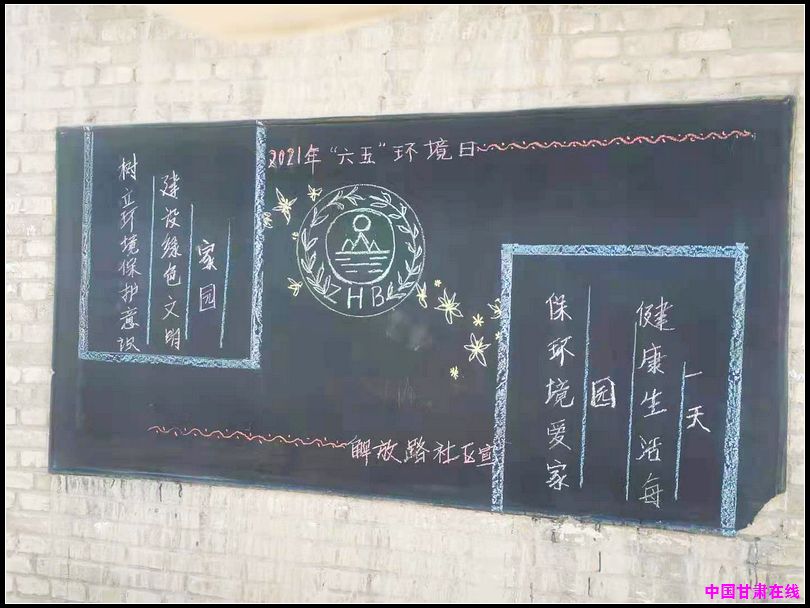 2021年“六五”环境日
树立环境保护意识
建设绿色文明
家园
ZHB
保环境爱家
园
健康生活每
一天
解放路社区宣
中国甘肃在线